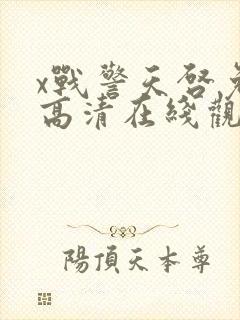 x戰警天啓免
高清在綫觀
陽頂天本尊